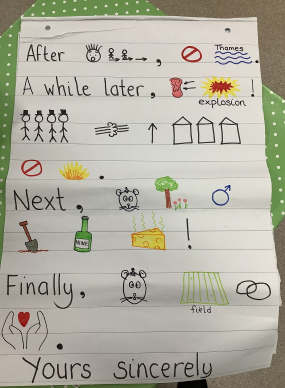 After , Thames .
A while later, !
explosion
.
Next,
WINE !
Finally,
field
.
Yours sincerely